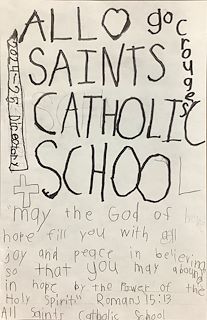 ALL ♡ go
crougers
SAINTS
CATHOLIC
SCHOOL
2024-25 Directory
"may the God of
hope fill you with all
joy and peace in believing
so that you may abound
in hope by the Power of the
Holy Spirit" Romans 15:13
All Saints Catholic School